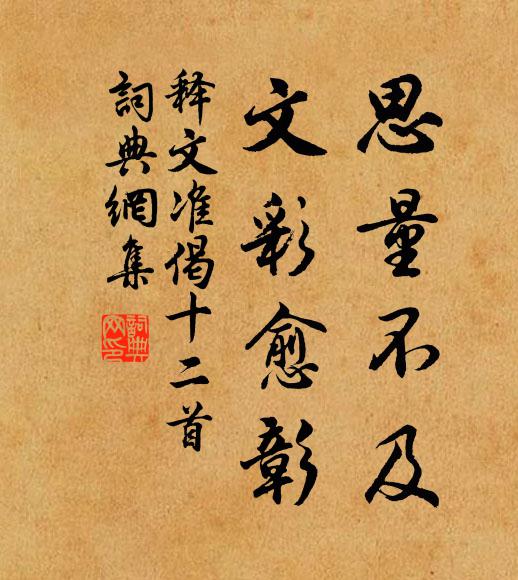 思量不及
文彩愈彰
释文准偈十二首
詞典網集
詞典网印